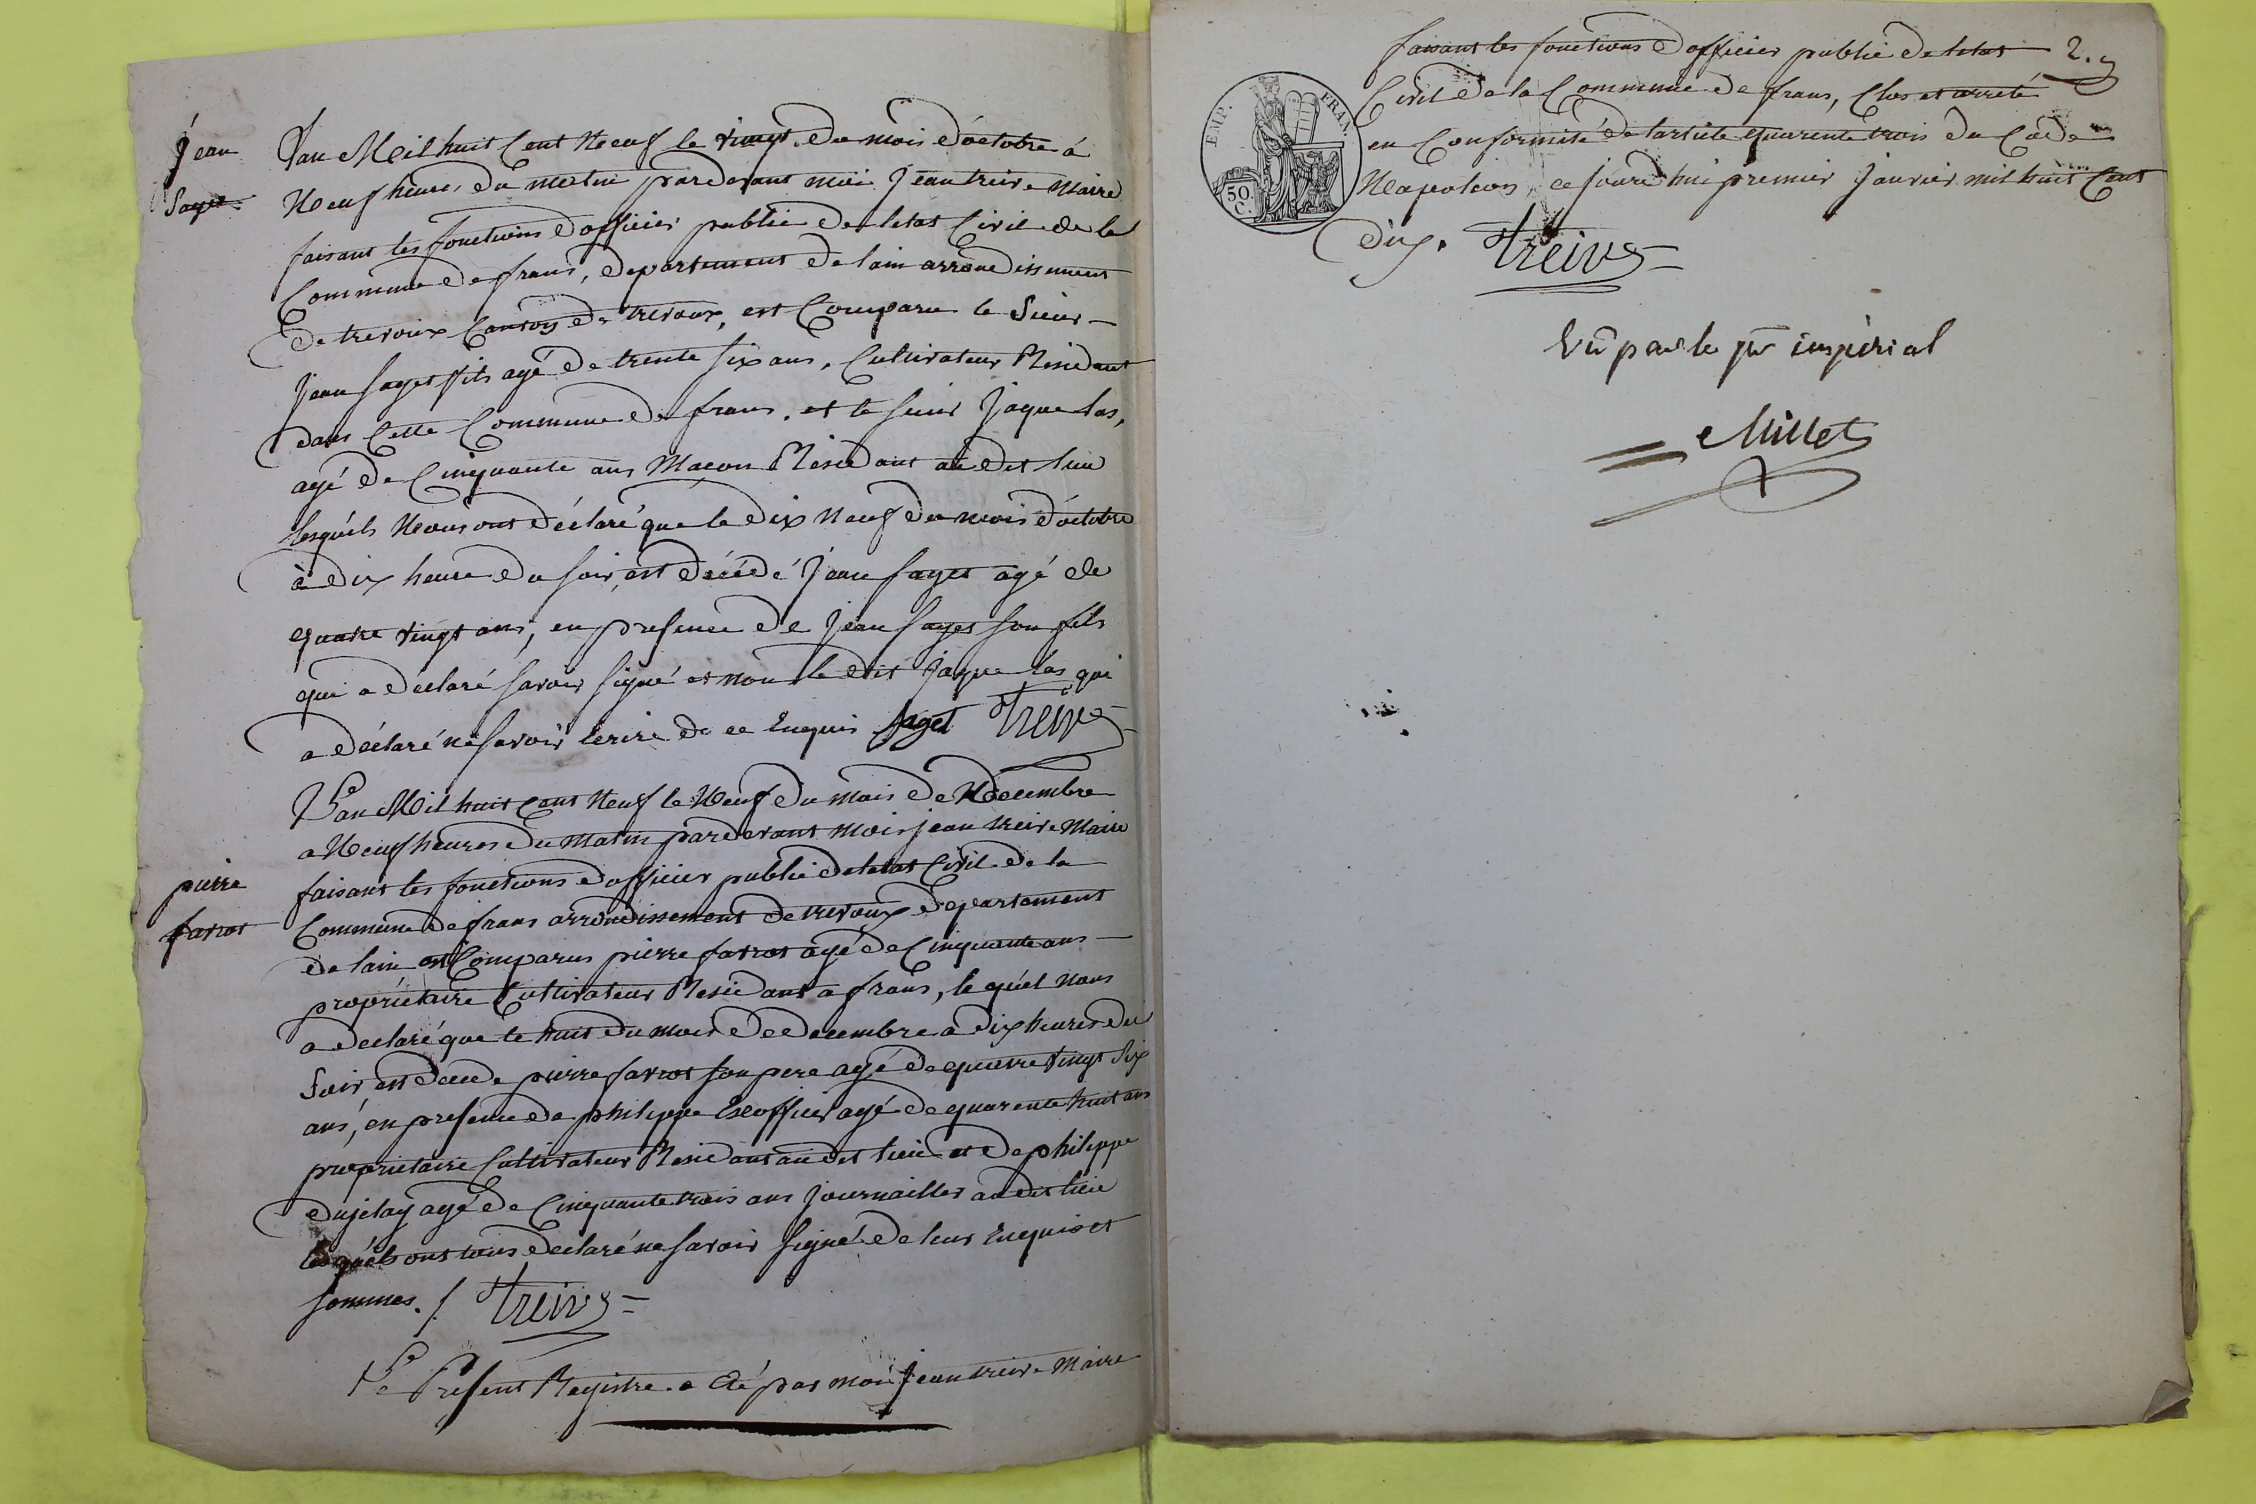 jean
Sayet
L'an Mil huit Cent Neuf le vingt du mois d'octobre à
Neuf heures du matin pardevant moi jean treive Maire
faisant les fonctions d'officier public de letat Civil de la
Commune de frans, departement de lain arrondissement
de trevoux Canton de trevoux, est Comparu le Sieur
jean sayet fils agé de trente six ans, Cultivateur Residant
dans Cette Commune de frans, et le sieur jaque las,
agé de Cinquante ans Macon Residant au dit lieu
lesquéls Nous ont déclaré qué le dix Neuf du mois d'octobre
à dix heure du soir, est décédé jean sayet agé de
quatre vingt ans, en presence de jean sayet son fils
qui a déclaré savoir signé et non le dit jaque las qui
a déclaré ne savoir écrire de ce Enquis sayet treive
L'an Mil huit Cent Neuf le Neuf du mois de décembre
a Neuf heures du Matin pardevant moi jean treive Maire
pierre
favrot
faisant les fonctions d'officier public de letat Civil de la
Commune de frans arrondissement de trevoux departement
de lain est Comparus pierre favrot agé de Cinquante ans
propriétaire Cultivateur Residant a frans, le quél Nous
a declaré que le huit du mois de decembre a dix heures du
Soir est decede pierre favrot son pere agé de quatre vingt Six
ans, en presence de philippe agé de quarente huit ans
proprietaire Cultivateur Residant au dit lieu et de philippe
dujelay agé de Cinquante trois ans journailler au dit lieu
lesquéls ont tous declaré ne savoir signé de leur Enquis et
sommes ./. treive
Le Present Registre a été par moi jean treive Maire
2.
faisant les fonctions d'officier public de letat
Civil de la Commune de frans, Clos et arreté
en Conformité de larticle quarente trois du Code
Napoleon, ce jourd'hui premier janvier mil huit Cent
dix. treive
EMP. FRAN.
50
C.
Vu par le pr impérial
Millet